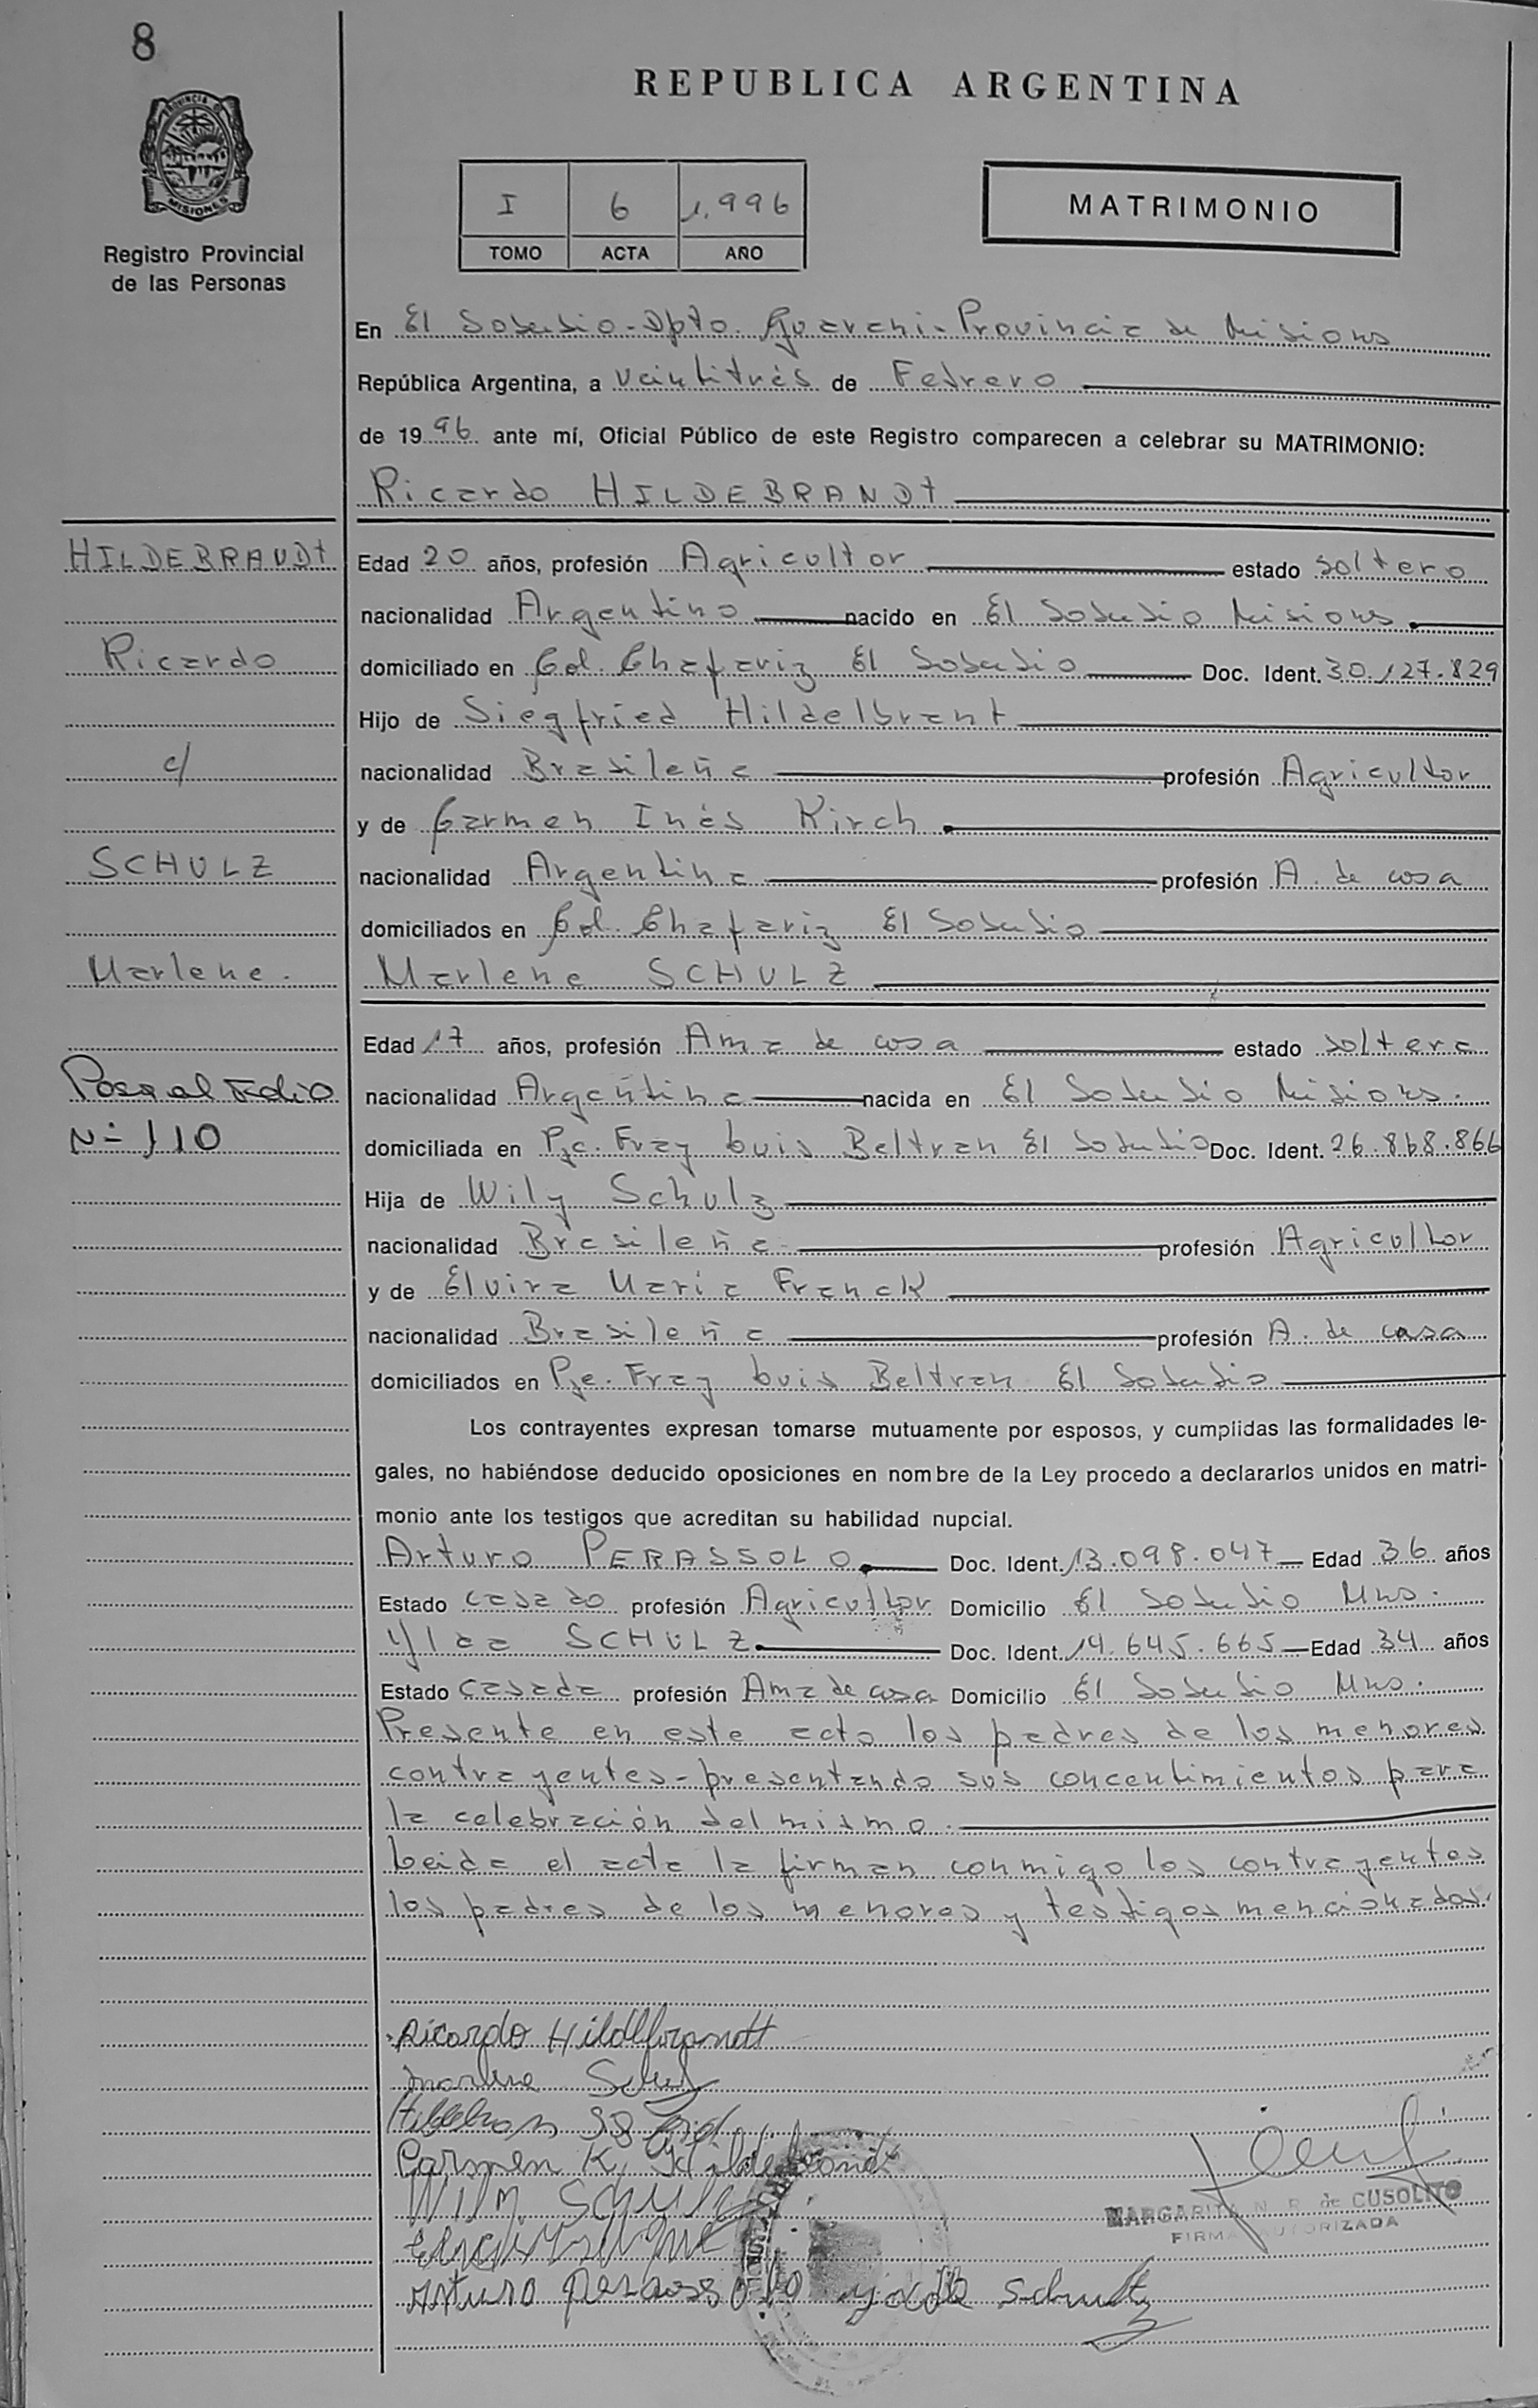 8
REPUBLICA ARGENTINA
PROVINCIA DE
MISIONES
Registro Provincial
de las Personas
I 6 1.996
TOMO ACTA AÑO
MATRIMONIO
En El Soberbio-Dpto. Guarani-Provincia de Misiones
República Argentina, a veintitrés de Febrero
de 1996 ante mí, Oficial Público de este Registro comparecen a celebrar su MATRIMONIO:
Ricardo HILDEBRANDt
HILDEBRANDt
Ricardo
c/
SCHULZ
Marlene.
Pasa al Folio
Nº 110
Edad 20 años, profesión Agricultor estado soltero
nacionalidad Argentino nacido en El Soberbio Misiones
domiciliado en Col. Chafariz El Soberbio Doc. Ident. 30.127.829
Hijo de Siegfried Hildelbrant
nacionalidad Brasileña profesión Agricultor
y de Carmen Inés Kirch
nacionalidad Argentina profesión A. de casa
domiciliados en Col. Chafariz El Soberbio
Marlene SCHULZ
Edad 17 años, profesión Ama de casa estado soltera
nacionalidad Argentina nacida en El Soberbio Misiones.
domiciliada en Pje. Fray Luis Beltran El Soberbio Doc. Ident. 26.868.866
Hija de Wily Schulz
nacionalidad Brasileña profesión Agricultor
y de Elvira Maria Franck
nacionalidad Brasileña profesión A. de casa
domiciliados en Pje. Fray Luis Beltran El Soberbio
Los contrayentes expresan tomarse mutuamente por esposos, y cumplidas las formalidades le-
gales, no habiéndose deducido oposiciones en nombre de la Ley procedo a declararlos unidos en matri-
monio ante los testigos que acreditan su habilidad nupcial.
Arturo PERASSOLO Doc. Ident. 13.098.047 Edad 36 años
Estado casado profesión Agricultor Domicilio El Soberbio Mnes.
Ylda SCHULZ Doc. Ident. 14.645.665 Edad 34 años
Estado casada profesión Ama de casa Domicilio El Soberbio Mnes.
Presente en este acto los padres de los menores
contrayentes-presentando sus concentimientos para
la celebración del mismo.
Leida el acta la firman conmigo los contrayentes
los padres de los menores y testigos mencionados.
Ricardo Hildebrandt
Marlene Schulz
Carmen K. Hildebrandt
Wily Schulz
Arturo Perassolo Ylda Schultz
MARGARITA N. R. de CUSOLITO
FIRMA AUTORIZADA